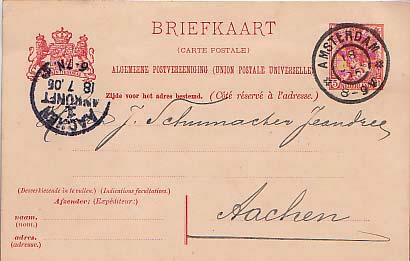 BRIEFKAART
(CARTE POSTALE)
ALGEMEENE POSTVEREENIGING (UNION POSTALE UNIVERSELLE)
Zijde voor het adres bestemd. (Côté réservé à l'adresse.)
AMSTERDAM
AACHEN
ANKUNFT
18 7.05
6-7N.
J. Schumacher Jeandree
Aachen
(Desverkiezende in te vullen.) (Indications facultatives.)
Afzender: (Expéditeur:)
naam.
(nom.)
adres.
(adresse.)